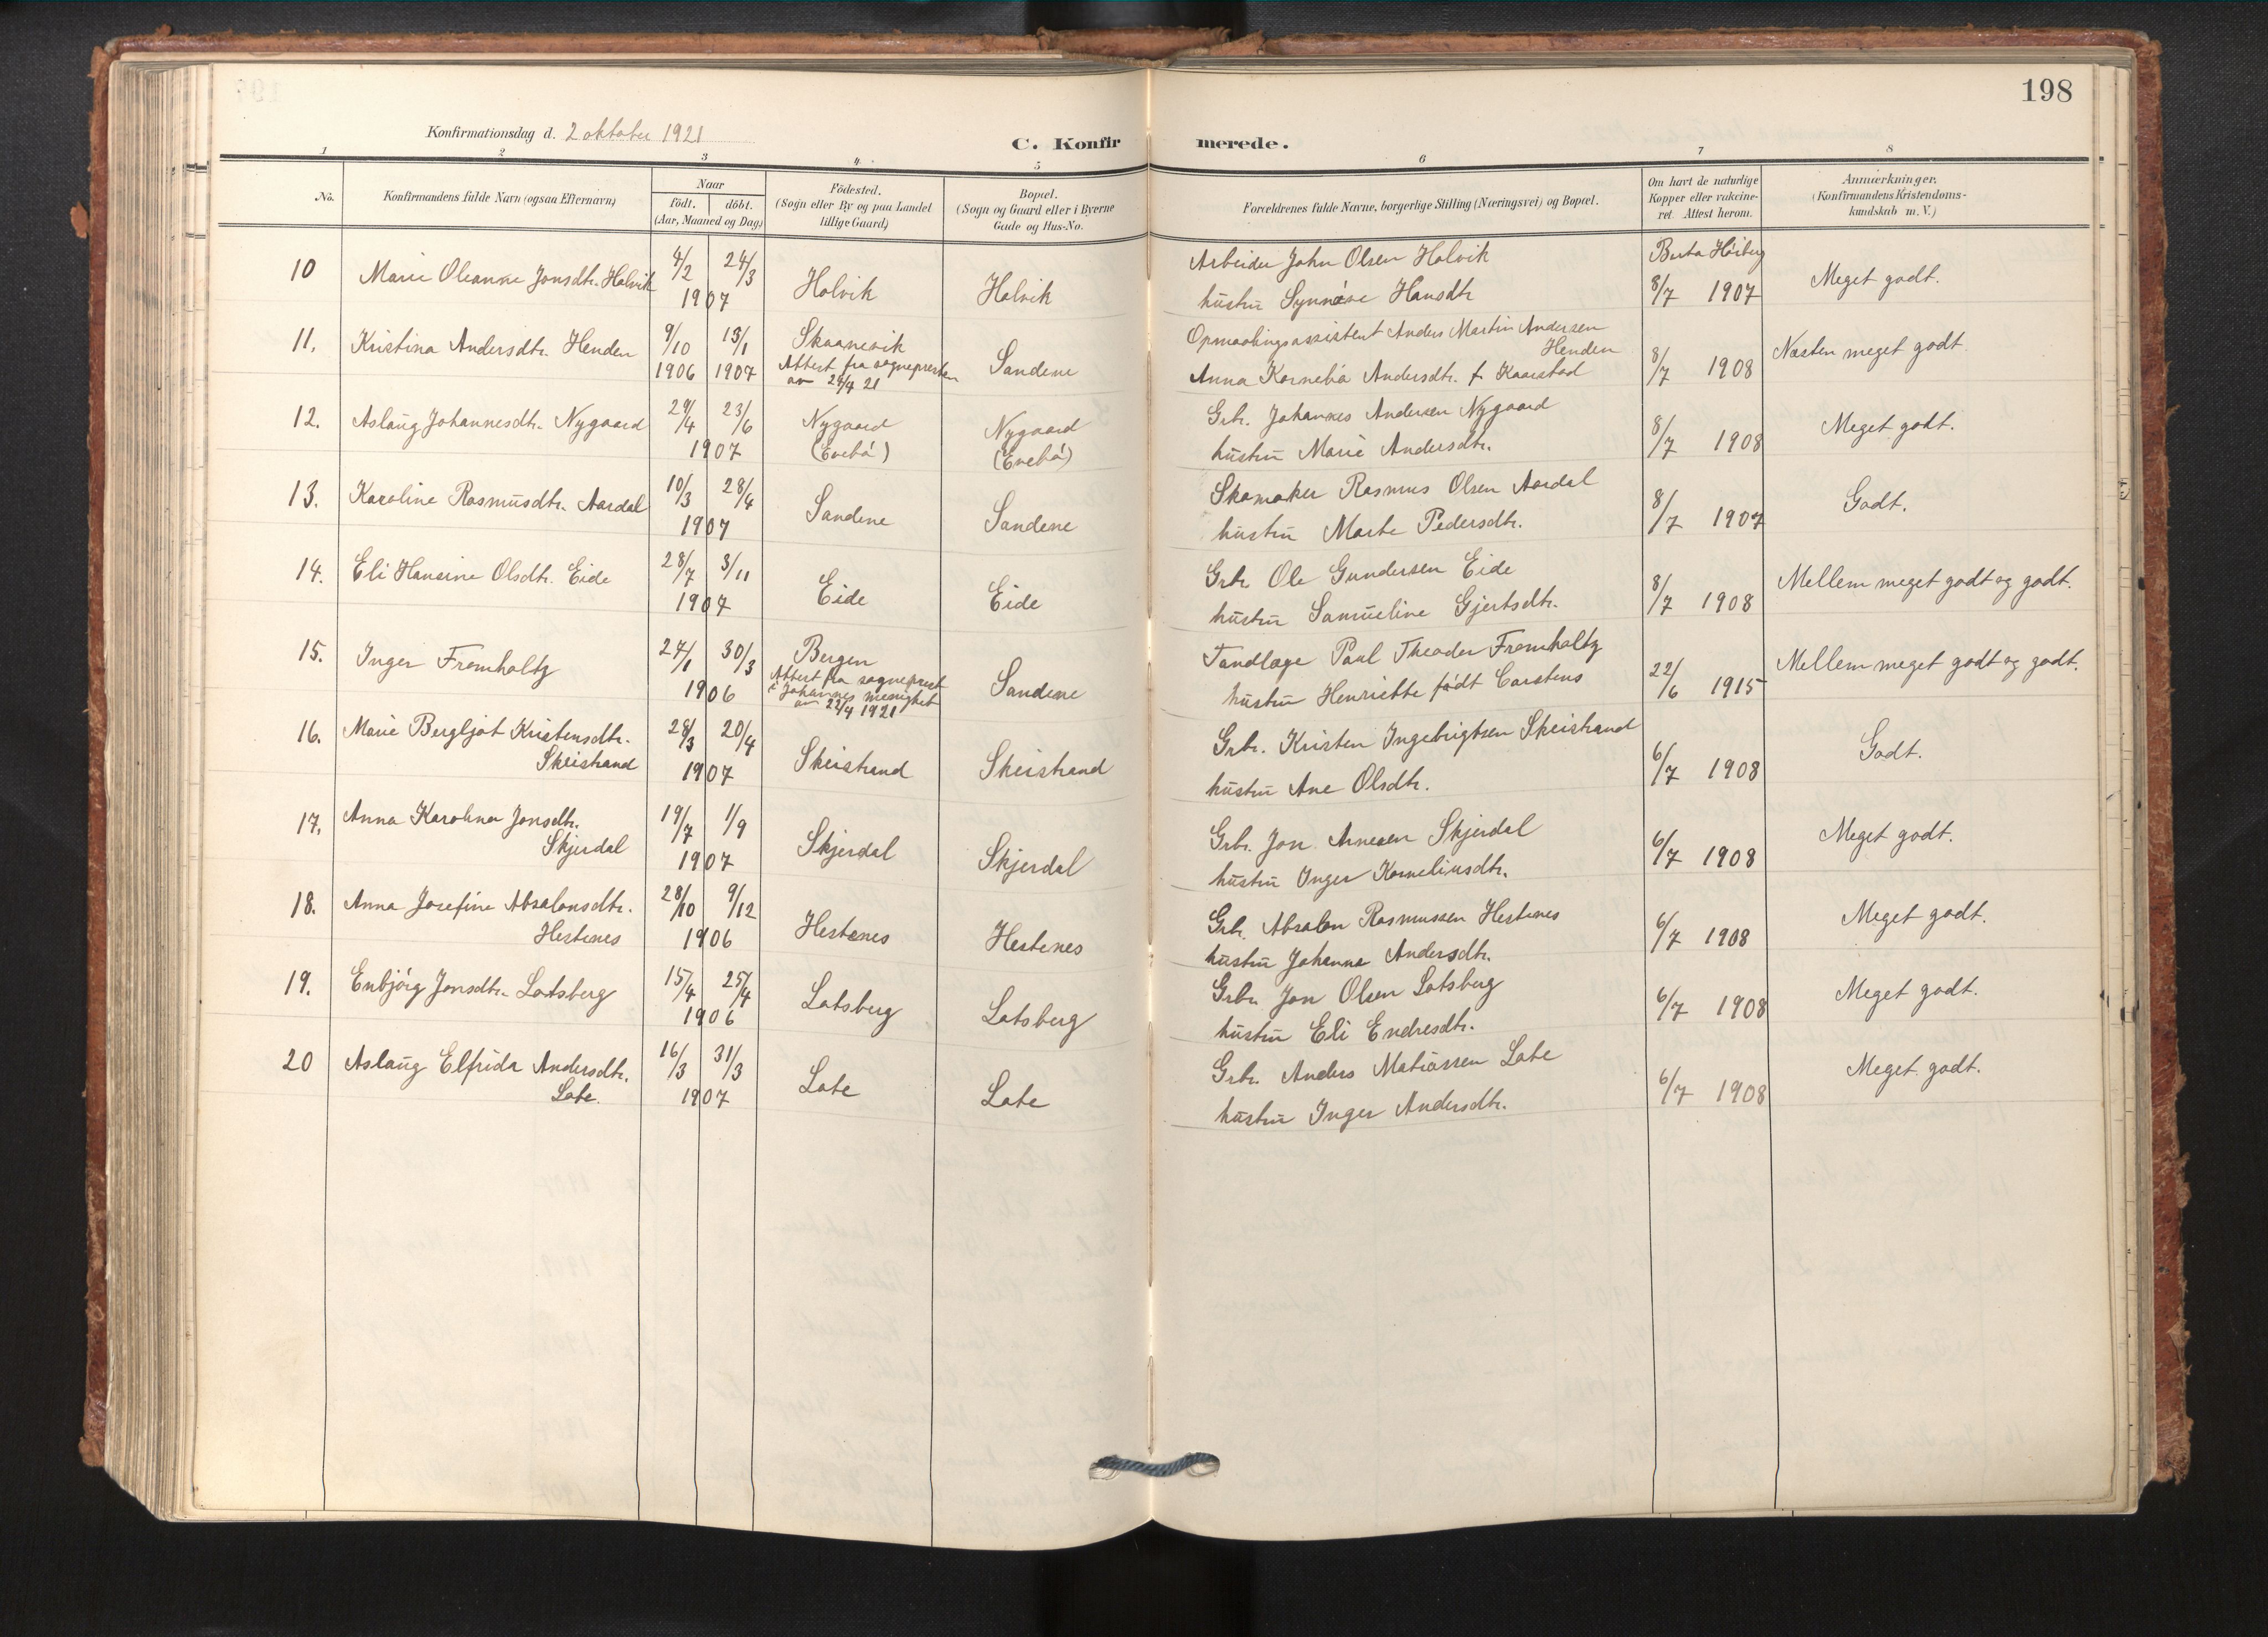 198
Konfirmationsdag d. 2 oktober 1921
C. Konfirmerede.
1 2 3 4 5 6 7 8
No.
Konfirmandens fulde Navn (ogsaa Efternavn)
Naar
födt. döbt.
(Aar, Maaned og Dag)
Födested.
(Sogn eller By og paa Landet
tillige Gaard)
Bopæl.
(Sogn og Gaard eller i Byerne
Gade og Hus-No.
Forældrenes fulde Navne, borgerlige Stilling (Næringsvei) og Bopæl.
Om havt de naturlige
Kopper eller vakcine-
ret. Attest herom.
Anmærkninger.
(Konfirmandens Kristendoms-
kundskab m. V.)
10 Marie Oleanne Jonsdtr. Holvik 4/2 24/3 1907 Holvik Holvik
Arbeider John Olsen Holvik
hustru Synnöve Hansdtr
Berta Höiberg
8/7 1907 Meget godt.
11. Kristina Andersdtr. Henden 9/10 1906 13/1 1907 Skaanevik
Attest fra sognepresten
av 28/4 21
Sandene
Opmaalingsassistent Anders Martin Andersen
Henden
Anna Kornelia Andersdtr. f. Kaarstad
8/7 1908 Næsten meget godt
12. Aslaug Johannesdtr. Nygaard 29/4 23/6 1907 Nygaard
(Evebö)
Nygaard
(Evebö)
Grbr. Johannes Andersen Nygaard
hustru Marie Andersdtr.
8/7 1908 Meget godt.
13. Karoline Rasmusdtr. Aardal 10/3 28/4 1907 Sandene Sandene
Skomaker Rasmus Olsen Aardal
hustru Marte Pedersdtr.
8/7 1907 Godt.
14. Eli Hansine Olsdtr. Eide 28/7 3/11 1907 Eide Eide
Grbr Ole Gundersen Eide
hustru Samueline Gjertsdtr.
8/7 1908 Mellem meget godt og godt.
15. Inger Fromholtz 27/1 30/3 1906 Bergen
Attest fra sogneprest
i Johannes menighet
av 22/4 1921
Sandene
Tandlæge Paul Theodor Fromholtz
hustru Henriette född Carstens
22/6 1915 Mellem meget godt og godt.
16. Marie Bergljot Kristensdtr.
Skeistrand
28/3 20/4 1907 Skeistrand Skeistrand
Grbr. Kristen Ingebrigtsen Skeistrand
hustru Ane Olsdtr.
6/7 1908 Godt.
17. Anna Karolina Jonsdtr.
Skjerdal
19/7 1/9 1907 Skjerdal Skjerdal
Grbr. Jon Arnesen Skjerdal
hustru Inger Korneliusdtr.
6/7 1908 Meget godt.
18. Anna Josefine Absalonsdtr.
Hestenes
28/10 9/12 1906 Hestenes Hestenes
Grbr. Absalon Rasmussen Hestenes
hustru Johanna Andersdtr.
6/7 1908 Meget godt.
19. Enbjörg Jonsdtr. Lotsberg 15/4 25/4 1906 Lotsberg Lotsberg
Grbr. Jon Olsen Lotsberg
hustru Eli Endresdtr.
6/7 1908 Meget godt.
20 Aslaug Elfrida Andersdtr.
Lote.
16/3 31/3 1907 Lote Lote
Grbr. Anders Matiassen Lote
hustru Inger Andersdtr.
6/7 1908 Meget godt.